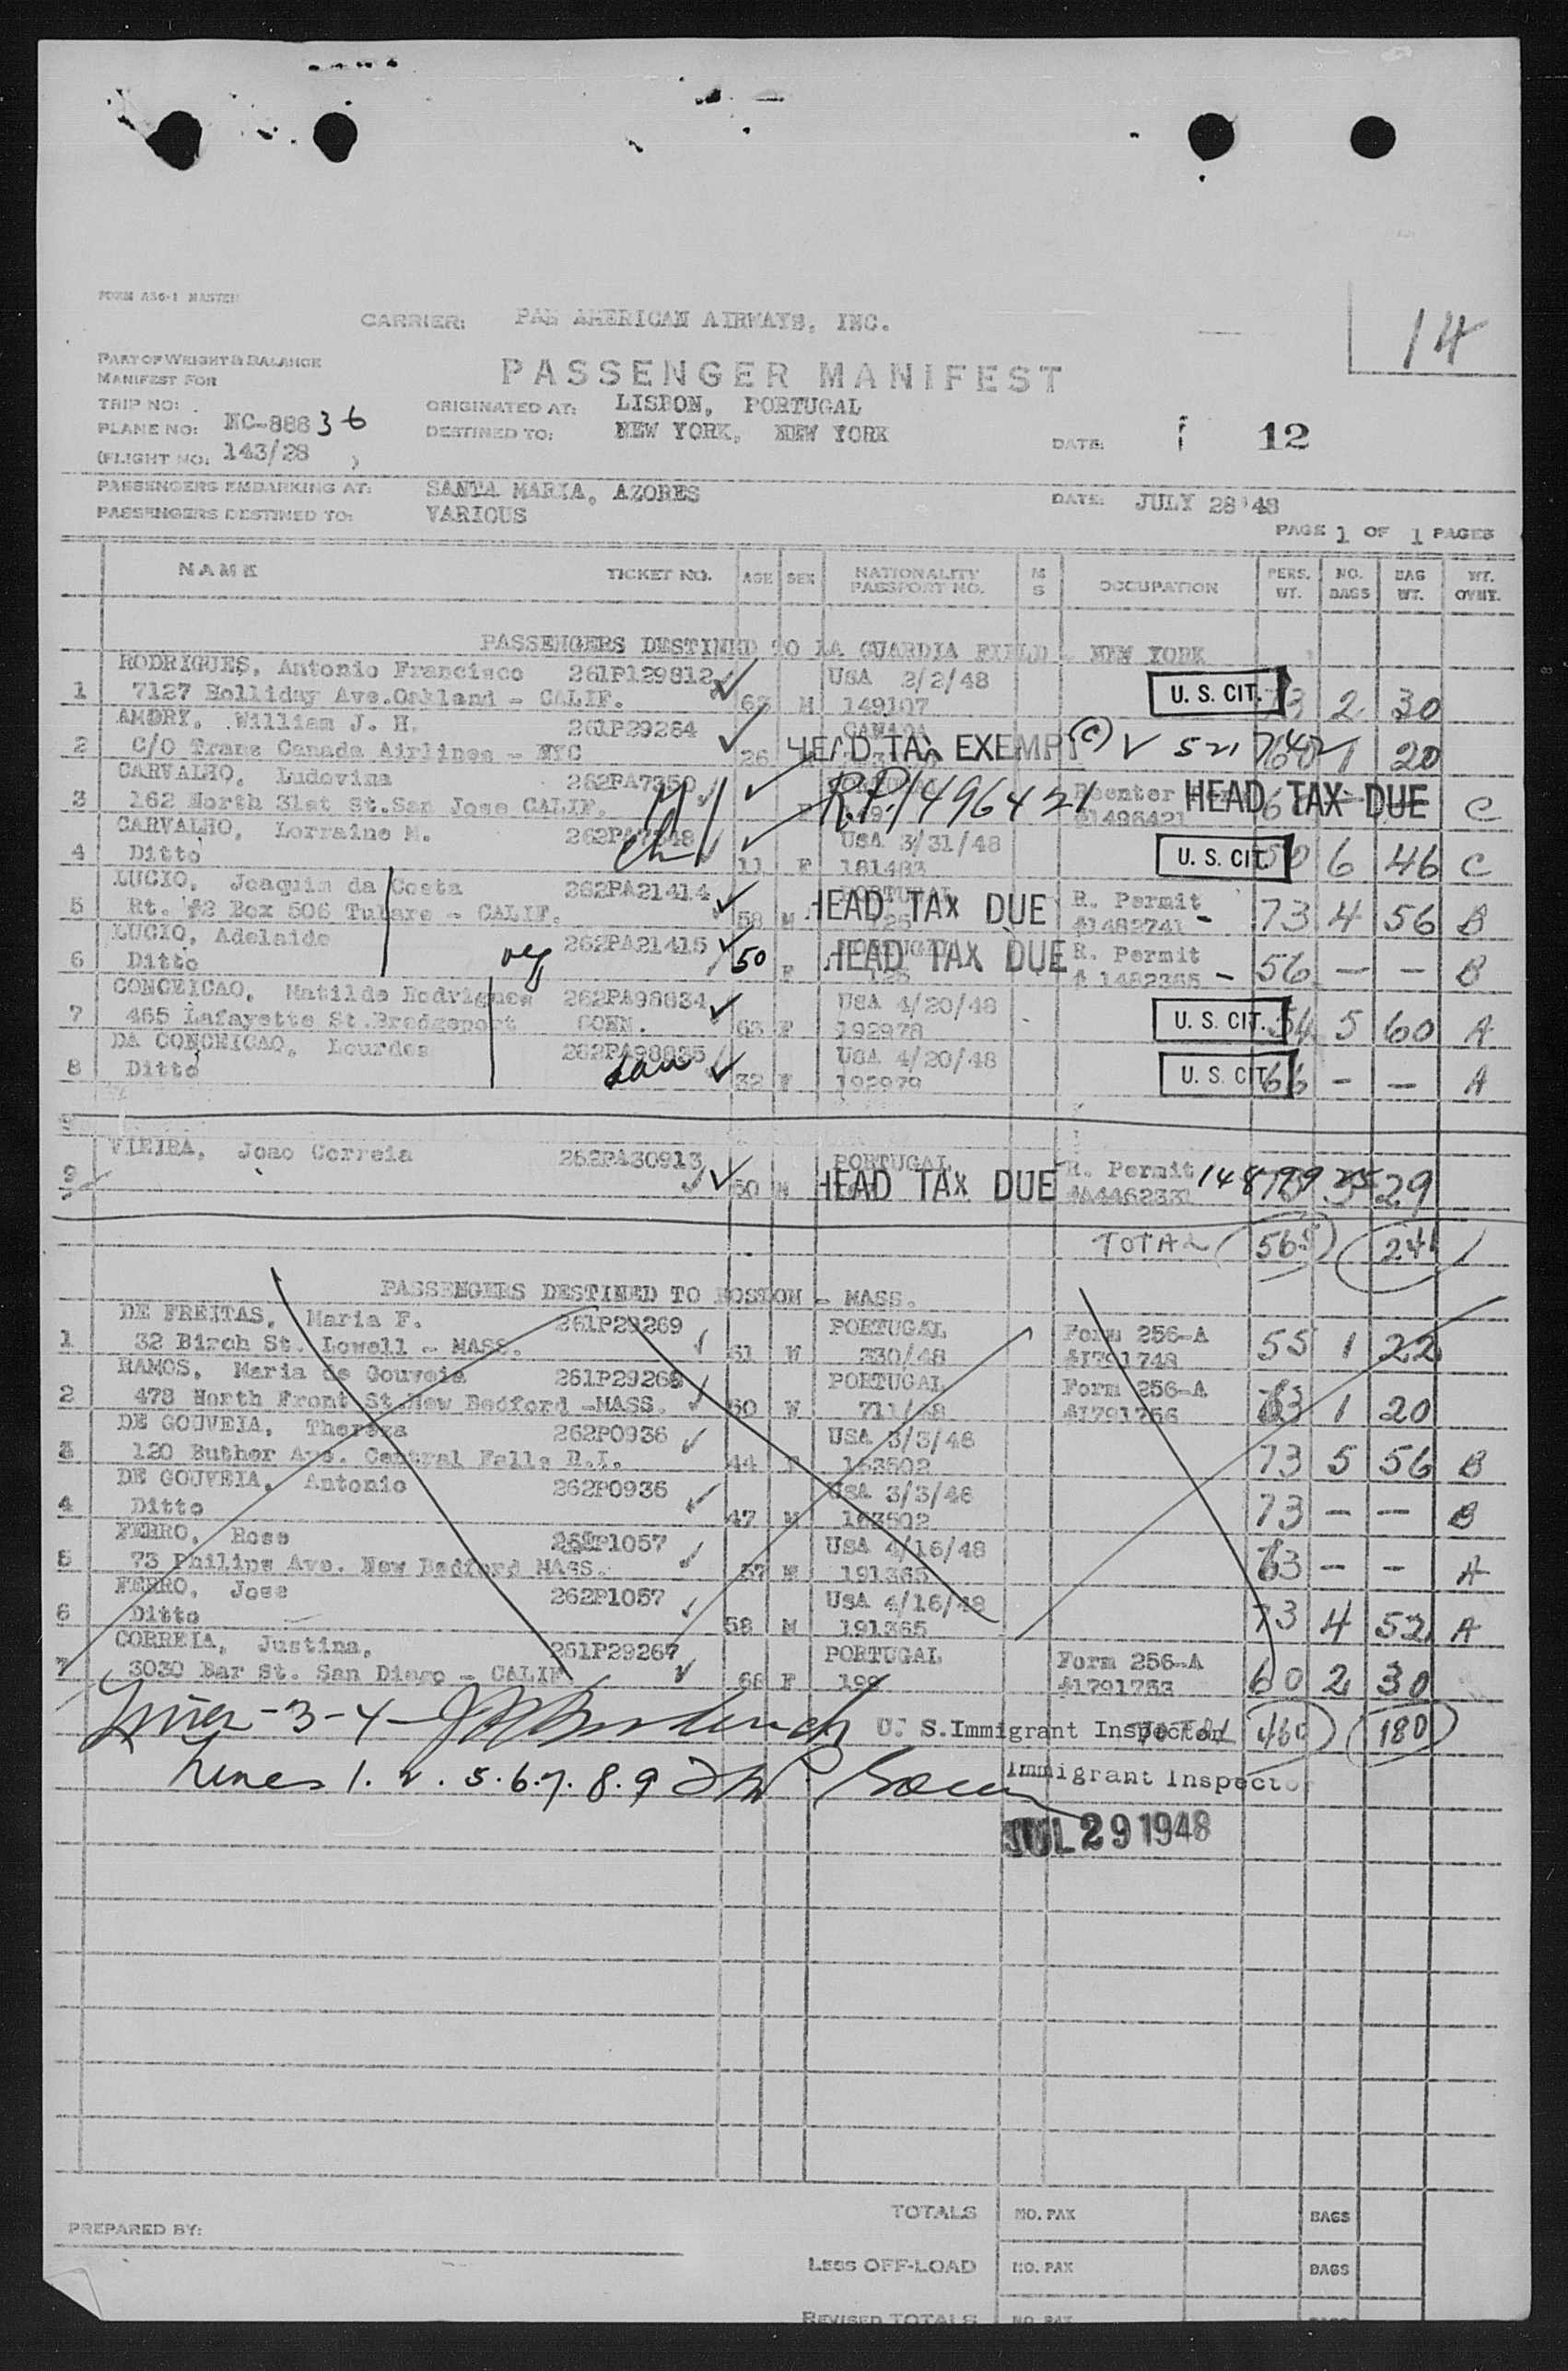 FORM A56-1 MASTER
CARRIER: PAN AMERICAN AIRWAYS, INC.
14
PART OF WEIGHT & BALANCE
MANIFEST FOR
PASSENGER MANIFEST
TRIP NO:
ORIGINATED AT: LISBON, PORTUGAL
PLANE NO: NC-88836
DESTINED TO: NEW YORK, NEW YORK
DATE: 12
(FLIGHT NO: 143/28 )
PASSENGERS EMBARKING AT: SANTA MARIA, AZORES
DATE: JULY 28'48
PASSENGERS DESTINED TO: VARIOUS
PAGE 1 OF 1 PAGES
NAME TICKET NO. AGE SEX NATIONALITY PASSPORT NO. M S OCCUPATION PERS. WT. NO. BAGS BAG WT. WT. OVHT.
PASSENGERS DESTINED TO LA GUARDIA FIELD - NEW YORK
RODRIGUES, Antonio Francisco 261P129812 USA 2/2/48
1 7127 Holliday Ave. Oakland - CALIF. M 149107 U. S. CIT. 73 2 30
AMORY, William J. H. 261P29264 CANADA
2 C/O Trans Canada Airlines - NYC 26 HEAD TAX EXEMPT (C) 521742 1 20
CARVALHO, Ludovina 262PA7350
3 162 North 31st St. San Jose CALIF. F R.P. 1496421 Reenter #1496421 HEAD TAX DUE C
CARVALHO, Lorraine M. 262PA7348 USA 3/31/48
4 Ditto 11 F 181483 U. S. CIT. 50 6 46 C
LUCIO, Joaquim da Costa 262PA21414 PORTUGAL R. Permit
5 Rt. #2 Box 506 Tulare - CALIF. 58 M 125 HEAD TAX DUE #1482741 - 73 4 56 B
LUCIO, Adelaide 262PA21415 PORTUGAL R. Permit
6 Ditto 50 F 126 HEAD TAX DUE # 1482365 - 56 — — B
CONCEICAO, Matilde Rodrigues 262PA98834 USA 4/20/48
7 465 Lafayette St. Bredgeport CONN. 63 F 192978 U. S. CIT. 54 5 60 A
DA CONCEICAO, Lourdes 262PA98835 USA 4/20/48
8 Ditto 32 F 192979 U. S. CIT. 66 — — A
VIEIRA, Joao Correia 262PA30913 PORTUGAL R. Permit
9 50 M HEAD TAX DUE #A4462331 29
TOTAL 565 241
PASSENGERS DESTINED TO BOSTON - MASS.
DE FREITAS, Maria F. 261P29269 PORTUGAL Form 256-A
1 32 Birch St. Lowell - MASS. 61 W 330/48 #1791748 55 1 22
RAMOS, Maria de Gouveia 261P29268 PORTUGAL Form 256-A
2 478 North Front St New Bedford -MASS. 60 W 711/48 #1791756 63 1 20
DE GOUVEIA, Thereza 262P0936 USA 3/3/48
3 120 Buther Ave. Central Falls R.I. 44 F 163502 73 5 56 B
DE GOUVEIA, Antonio 262P0935 USA 3/3/48
4 Ditto 47 M 163502 73 — — B
FERRO, Rose 262P1057 USA 4/16/48
5 73 Philips Ave. New Bedford MASS. 57 M 191365 63 — — A
FERRO, Jose 262P1057 USA 4/16/48
6 Ditto 58 M 191365 73 4 52 A
CORREIA, Justina, 261P29267 PORTUGAL Form 256-A
7 3030 Bar St. San Diego - CALIF 68 F 199 #1791753 60 2 30
Lines - 3 - 4 - U. S. Immigrant Inspector 460 180
Lines 1. 2. 5. 6. 7. 8. 9 Immigrant Inspector
JUL 29 1948
TOTALS NO. PAX BAGS
PREPARED BY:
LESS OFF-LOAD NO. PAX BAGS
REVISED TOTALS NO. PAX BAGS